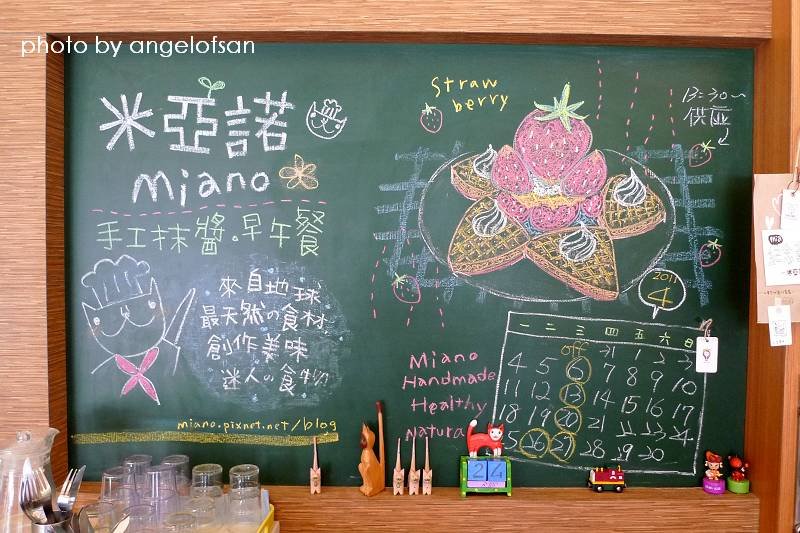 photo by angelofsan
米亞諾
miano
手工抹醬。早午餐
來自地球
最天然の食材
創作美味
迷人の食物
miano.pixnet.net/blog
Straw
berry
13:30~
供應
2011
4
一 二 三 四 五 六 日
off →1 2 3
4 5 6 7 8 9 10
11 12 13 14 15 16 17
18 19 20 21 22 23 24
25 26 27 28 29 30
Miano
Handmade
Healthy
Natura
24